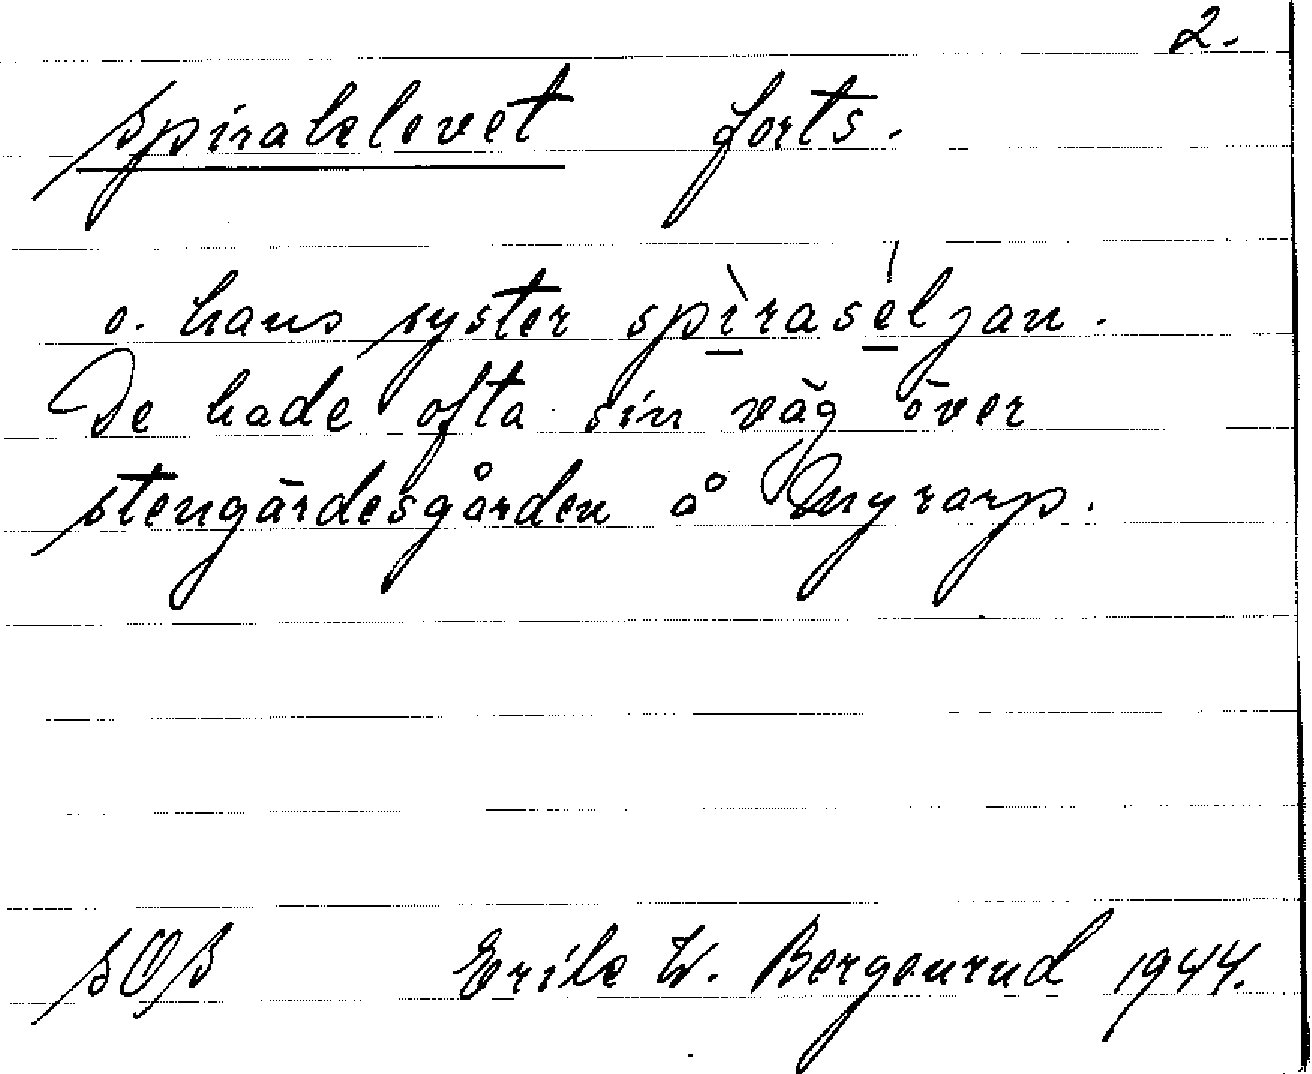 2.
Spiraklevet forts.
o. hans syster spìraséljan.
De hade ofta sin väg över
stengärdesgården å Myrarp.
SOS Erik W. Bergenrud 1944.